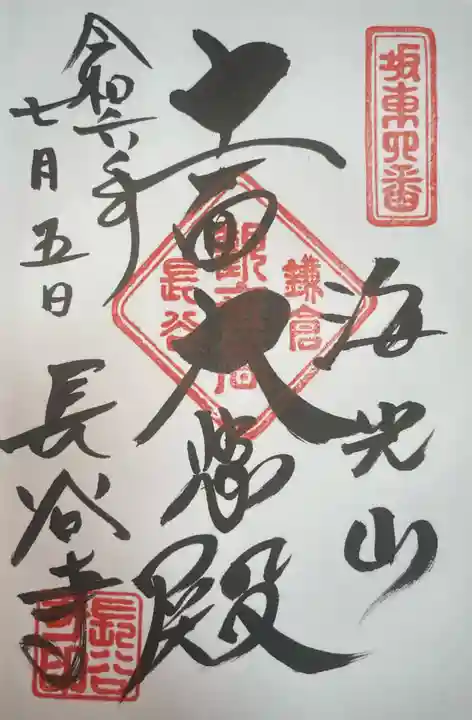 坂東四番
海光山
十一面大悲殿
鎌倉
観音堂
長谷
令和六年
七月五日
長谷寺
長谷寺印